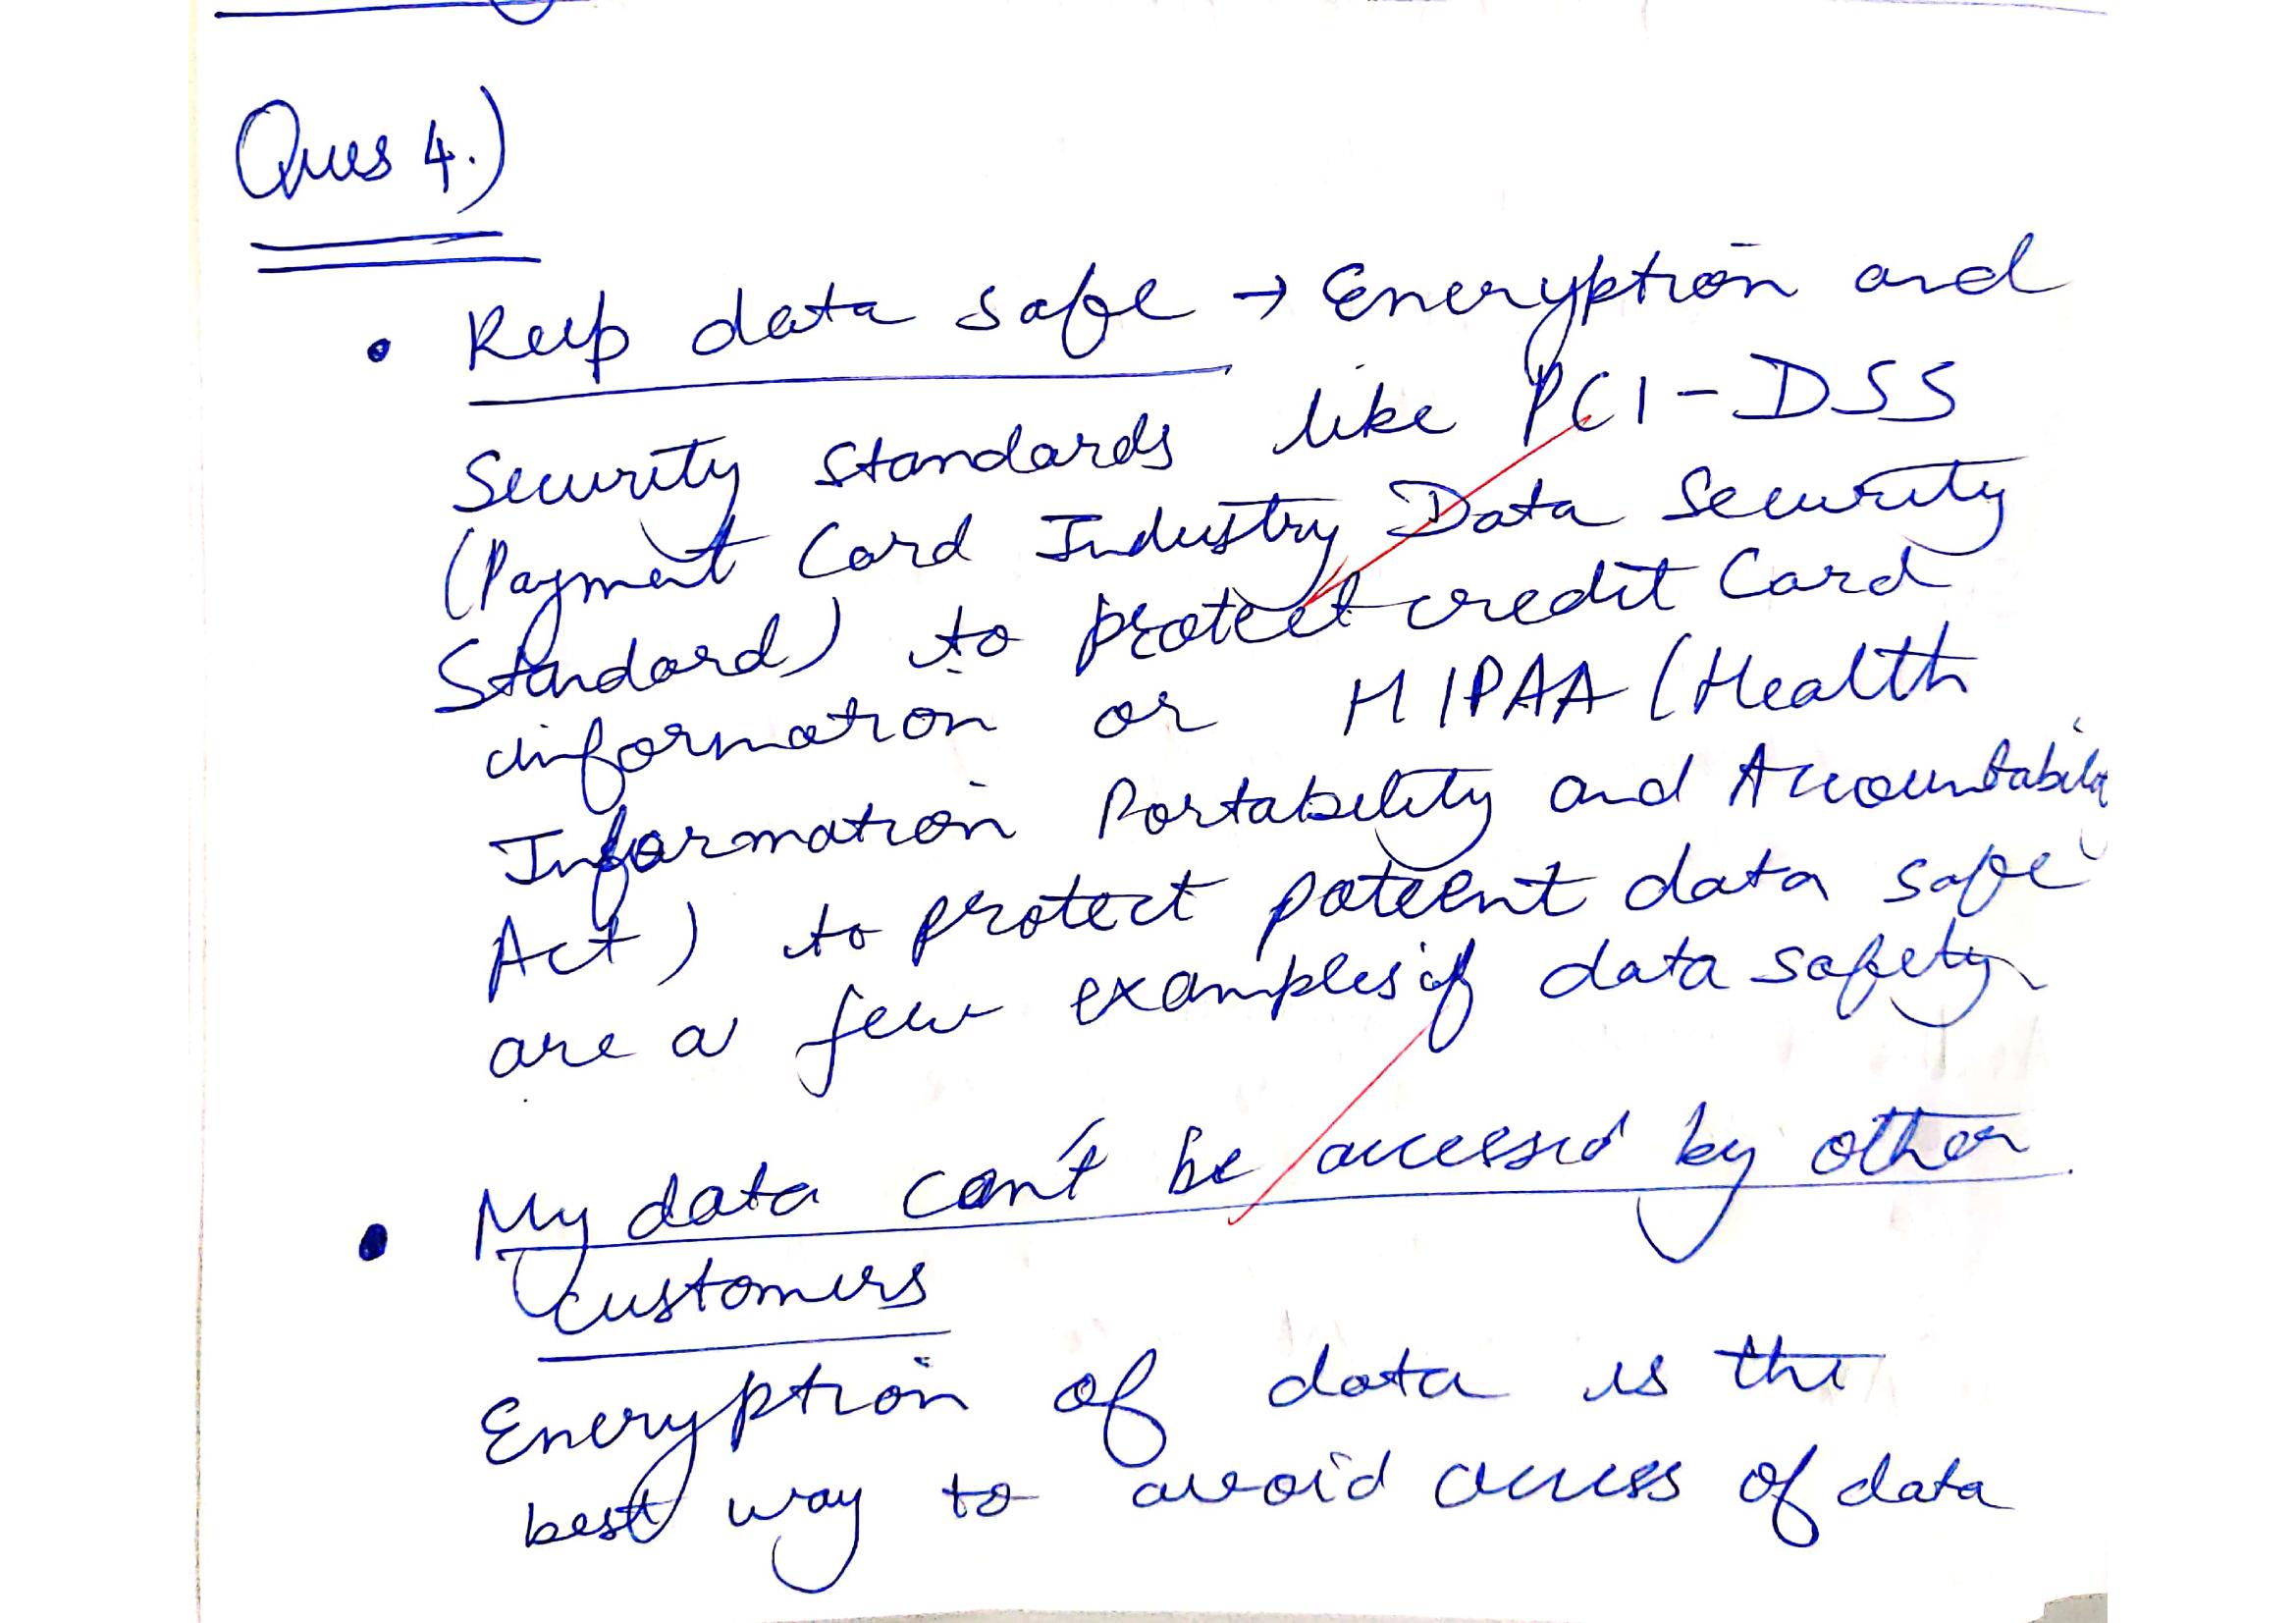 Ques 4.)
• Keep data safe → Encryption and
Security standards like PCI-DSS
(Payment Card Industry Data Security
Standard) to protect credit Card
information or HIPAA (Health
Information Portability and Accountability
Act) to protect pateent data safe
are a few examples of data safety
• My data can't be accessed by other
customers
Encryption of data is the
best way to avoid access of data